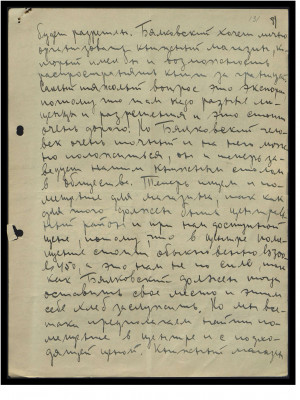 будет разрешен. Бялковский хочет лично
организовать книжный магазин, ко-
торый имел бы и возможность
распространять книги за границей
самый тяжелый вопрос это экспорт
потому что там надо разные ли-
цензии и разрешения и это стоит
очень дорого. Но Бялковский чело-
век очень точный и на него можно
положиться, он и теперь за-
ведует нашим книжным столом
в обществе. Теперь ищем и по-
мещение для магазина, так как
для того должен быть центральный
район и при том доступной
цене, потому что в центре поме-
щение стоит обыкновенно
а это нам не по силам
как Бялковский должен тогда
оставить свое место и этим
себе хлеб заслужить. Но мы все-
таки предполагаем найти по-
мещение в центре и с подхо-
дящей ценой. Книжный магазин